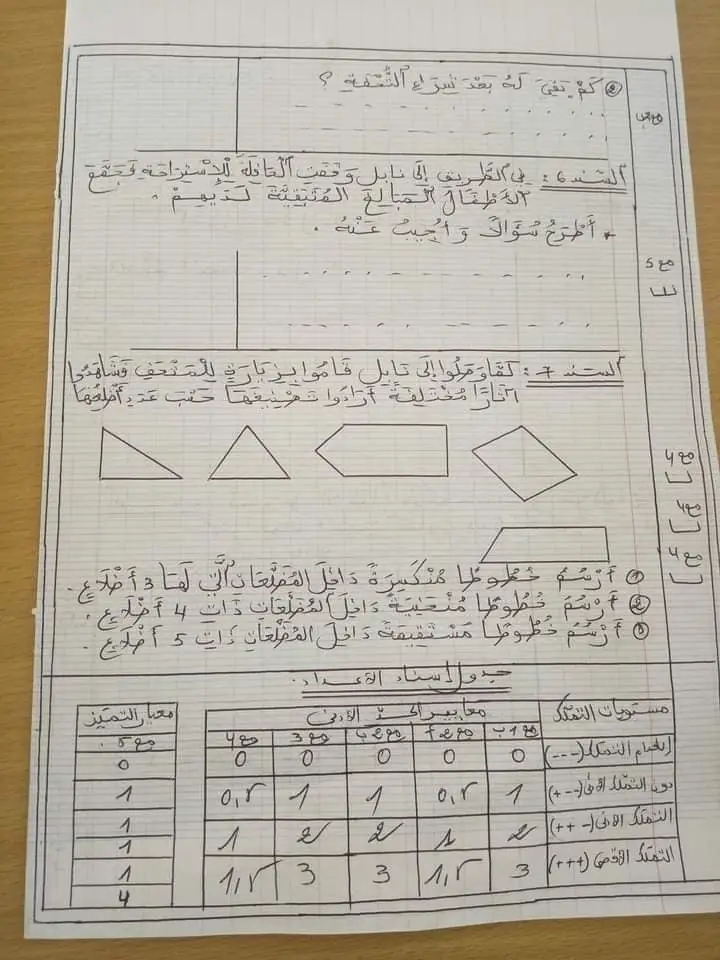 ② كَمْ بَقِيَ لَهُ بَعْدَ شِرَاءِ التُّحْفَةِ ؟
مع2ب
السّند 6 : في الطَّرِيقِ إِلَى نَابِل وَقَفَتِ الْحَافِلَةُ لِلْإِسْتِرَاحَةِ فَجَمَّعَ
الأَطْفَالُ الْمَبَالِغَ المُتَبَقِّيَّةَ لَدَيْهِمْ .
* أَطْرَحُ سُؤَالاً وَ أُجِيبُ عَنْهُ .
مع 5
السّند 7 : لَمَّا وَصَلُوا إِلَى نَابِل قَامُوا بِزِيَارَةٍ لِلْمَتْحَفِ فَشَاهَدُوا
آثَارًا مُخْتَلِفَةً أَرَادُوا تَصْنِيفَهَا حَسَبَ عَدَدِ أَضْلُعِهَا
مع4
مع4
مع4
① أَرْسُمُ خُطُوطًا مُنْكَسِرَةً دَاخِلَ المُضَلَّعَاتِ الَّتِي لَهَا 3 أَضْلَاعٍ.
② أَرْسُمُ خُطُوطًا مُنْحَنِيَةً دَاخِلَ المُضَلَّعَاتِ ذَاتِ 4 أَضْلَاعٍ .
③ أَرْسُمُ خُطُوطًا مُسْتَقِيمَةً دَاخِلَ المُضَلَّعَاتِ ذَاتِ 5 أَضْلَاعٍ .
جدول إسناد الأعداد.
مستويات التملّك معايير الحدّ الأدنى معيار التميّز
مع1ب مع2أ مع2ب مع3 مع4 مع5 .
إنعدام التملك (---) 0 0 0 0 0 0
دون التملّك الأدنى (--+) 1 0,5 1 1 0,5 1
التملك الأدنى (-++) 2 1 2 2 1 1
1
التملك الأقصى (+++) 3 1,5 3 3 1,5 1
4